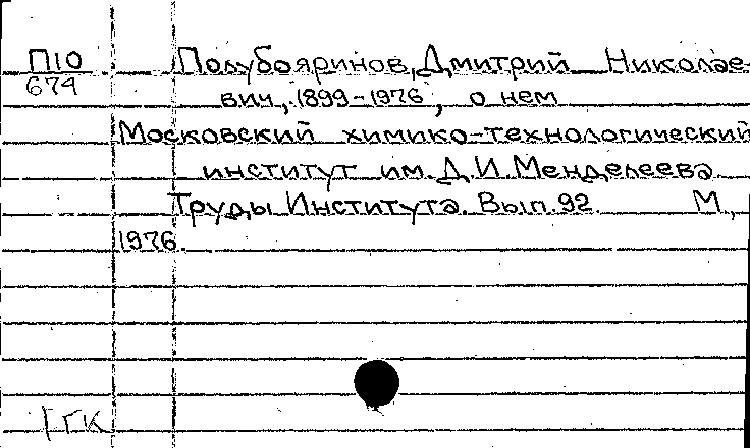 П10 Полубояринов, Дмитрий Николае-
674 вич, 1899-1976, о нем
Московский химико-технологический
институт им. Д.И. Менделеева.
Труды Института. Вып. 92. М.,
1976.
ГК